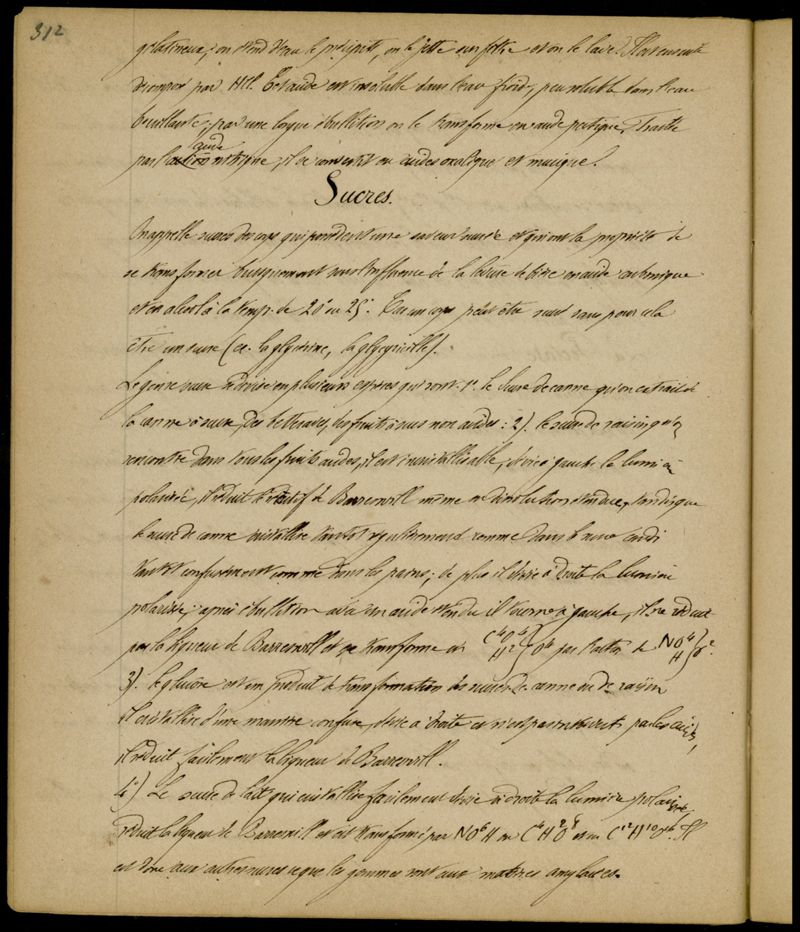 312
gélatineux, on étend d'eau le précipité, on le jette sur filtre et on le lave. Il est ensuite
décomposé par HCl. Cet acide est insoluble dans l'eau froide, peu soluble dans l'eau
bouillante; par une longue ébullition on le transforme en acide pectique. Traité
par l'acide nitrique, il se convertit en acides oxalique et mucique.
Sucres.
On appelle sucres des corps qui possèdent une saveur sucrée et qui ont la propriété de
se transformer brusquement sous l'influence de la levure de bière en acide carbonique
et en alcool à la temp. de 20° ou 25°. Car un corps peut être sucré sans pour cela
être un sucre (ex. la glycérine, la glycyrrhizine).
Le genre sucre se divise en plusieurs espèces qui sont: 1°. le Sucre de canne qu'on extrait de
la canne à sucre, des betteraves, des fruits sucrés non acides: 2). le sucre de raisin qu'on
rencontre dans tous les fruits acides, il est incristallisable, dévie à gauche la lumière
polarisée, il réduit le réactif de Barreswill même en dissolution étendue, tandis que
le sucre de canne cristallise tantôt régulièrement comme dans le sucre candi
tantôt confusément comme dans les pains; de plus il dévie à droite la lumière
polarisée; après ébullition avec un acide étendu il tourne à gauche, il ne réduit
pas la liqueur de Barreswill et se transforme en C⁴O⁴ H² } O⁴ par l'action de NO⁴ H } O².
3). le glucose est un produit de transformation des sucres de canne ou de raisin
il cristallise d'une manière confuse, dévie à droite et n'est pas interverti par les acides,
il réduit facilement la liqueur de Barreswill.
4°) Le sucre de lait qui cristallise facilement dévie à droite la lumière polarisée,
réduit la liqueur de Barreswill et est transformé par NO⁶H en C⁴H²O⁸ et en C¹²H¹⁰O¹⁶. Il
est donc aux autres sucres ce que les gommes sont aux matières amylacées.